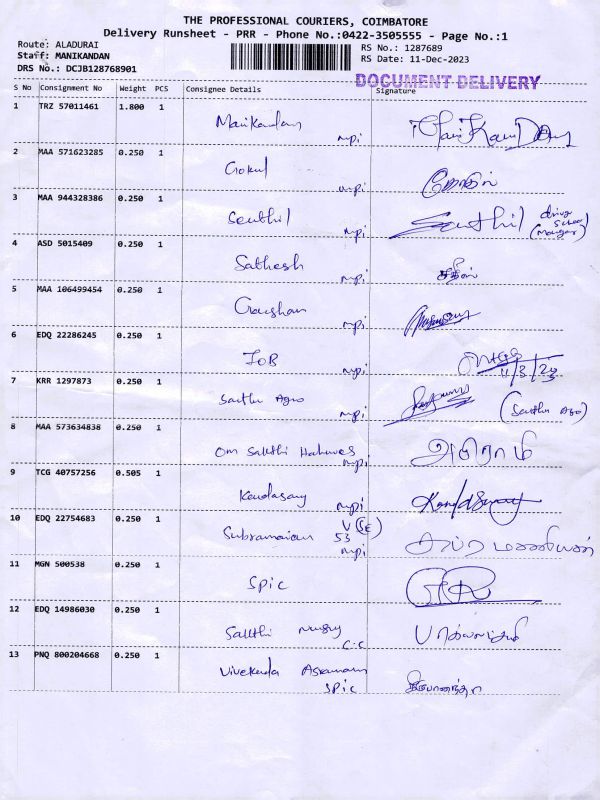 THE PROFESSIONAL COURIERS, COIMBATORE
Delivery Runsheet - PRR - Phone No.:0422-3505555 - Page No.:1
Route: ALADURAI
Staff: MANIKANDAN
DRS No.: DCJB128768901
RS No.: 1287689
RS Date: 11-Dec-2023
DOCUMENT DELIVERY
S No Consignment No Weight PCS Consignee Details Signature
1 TRZ 57011461 1.800 1 Manikandan mpi
2 MAA 571623285 0.250 1 Gokul mpi கோகுல்
3 MAA 944328386 0.250 1 Senthil mpi Senthil
4 ASD 5015409 0.250 1 Sathesh mpi சதீஸ்
5 MAA 106499454 0.250 1 mpi
6 EDQ 22286245 0.250 1 IOB mpi 11/3/23
7 KRR 1297873 0.250 1 Santhu Agro mpi (Santhu Agro)
8 MAA 573634838 0.250 1 Om Sakthi mpi
9 TCG 40757256 0.505 1 Kandasamy mpi
10 EDQ 22754683 0.250 1 Subramaniam V (SE) 53 mpi
11 MGN 500538 0.250 1 Spic
12 EDQ 14986030 0.250 1 Sakthi C.C
13 PNQ 800204668 0.250 1 Spic